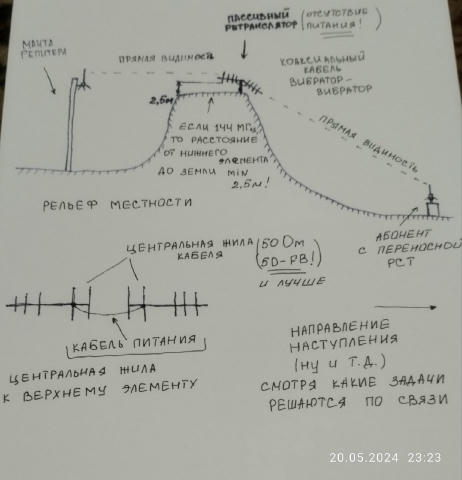 ПАССИВНЫЙ
РЕТРАНСЛЯТОР
(ОТСУТСТВИЕ
ПИТАНИЯ!)
МАЧТА
РЕПИТЕРА
ПРЯМАЯ ВИДИМОСТЬ
КОАКСИАЛЬНЫЙ
КАБЕЛЬ
ВИБРАТОР-
ВИБРАТОР
2,5м
ЕСЛИ 144 МГц,
ТО РАССТОЯНИЕ
ОТ НИЖНЕГО
ЭЛЕМЕНТА
ДО ЗЕМЛИ MIN
2,5м!
ПРЯМАЯ ВИДИМОСТЬ
РЕЛЬЕФ МЕСТНОСТИ
АБОНЕНТ
С ПЕРЕНОСНОЙ
РСТ
ЦЕНТРАЛЬНАЯ ЖИЛА
КАБЕЛЯ
(50 Ом
5D-FB!)
И ЛУЧШЕ
КАБЕЛЬ ПИТАНИЯ
ЦЕНТРАЛЬНАЯ ЖИЛА
К ВЕРХНЕМУ ЭЛЕМЕНТУ
НАПРАВЛЕНИЕ
НАСТУПЛЕНИЯ
(ну и т.д.)
СМОТРЯ КАКИЕ ЗАДАЧИ
РЕШАЮТСЯ ПО СВЯЗИ
20.05.2024 23:23